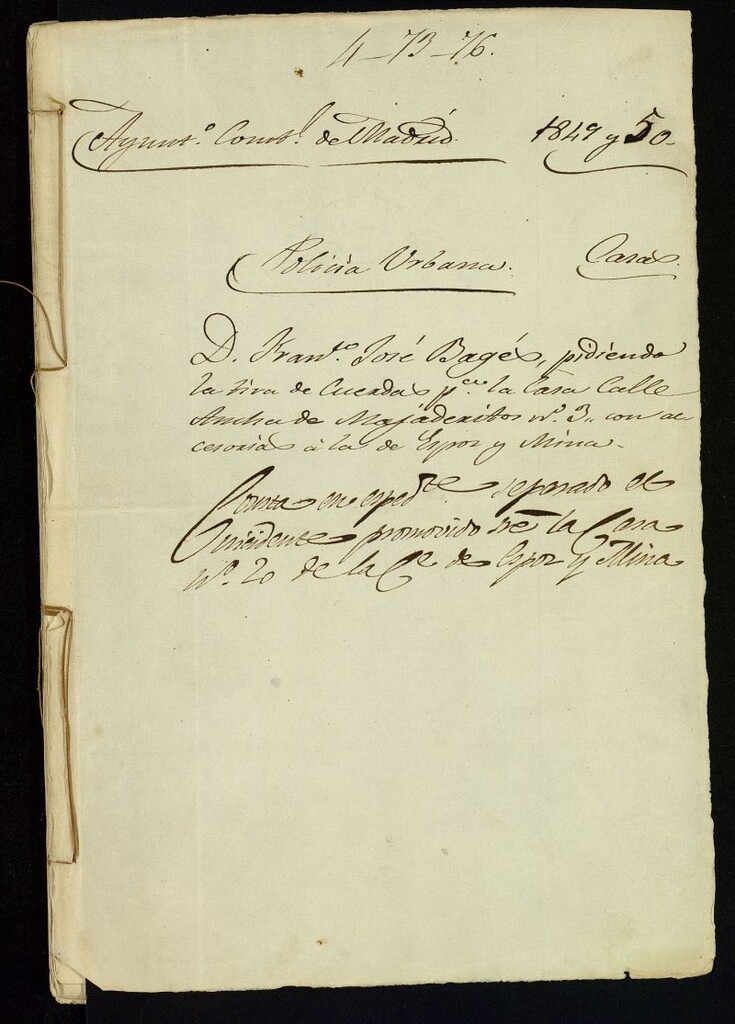 4-73-76.
Ayunt.º Const.l de Madrid. 1849 y 50-
Policía Urbana. Casas.
D. Fran.co José Bagés, pidiendo
la tira de Cuerdas p.a la Casa Calle
Ancha de Majaderitos nº. 3,, con ac
cesorias á la de Espoz y Mina.
Consta en esped.te separado el
incidente promovido sre la Casa
nº. 20 de la C.e de Espoz y Mina